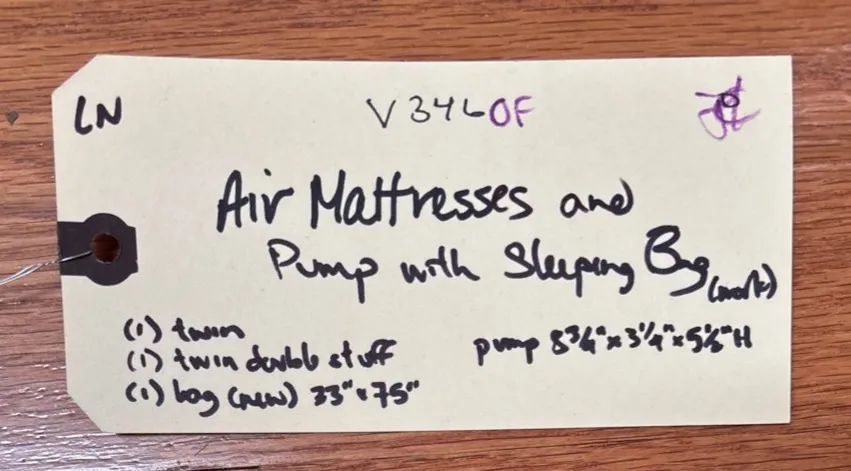 LN V34LOF
Air Mattresses and
Pump with Sleeping Bag (work)
(1) twin
(1) twin double stuff
(1) bag (new) 33" x 75"
pump 8 3/4" x 3 1/4" x 5 1/2" H